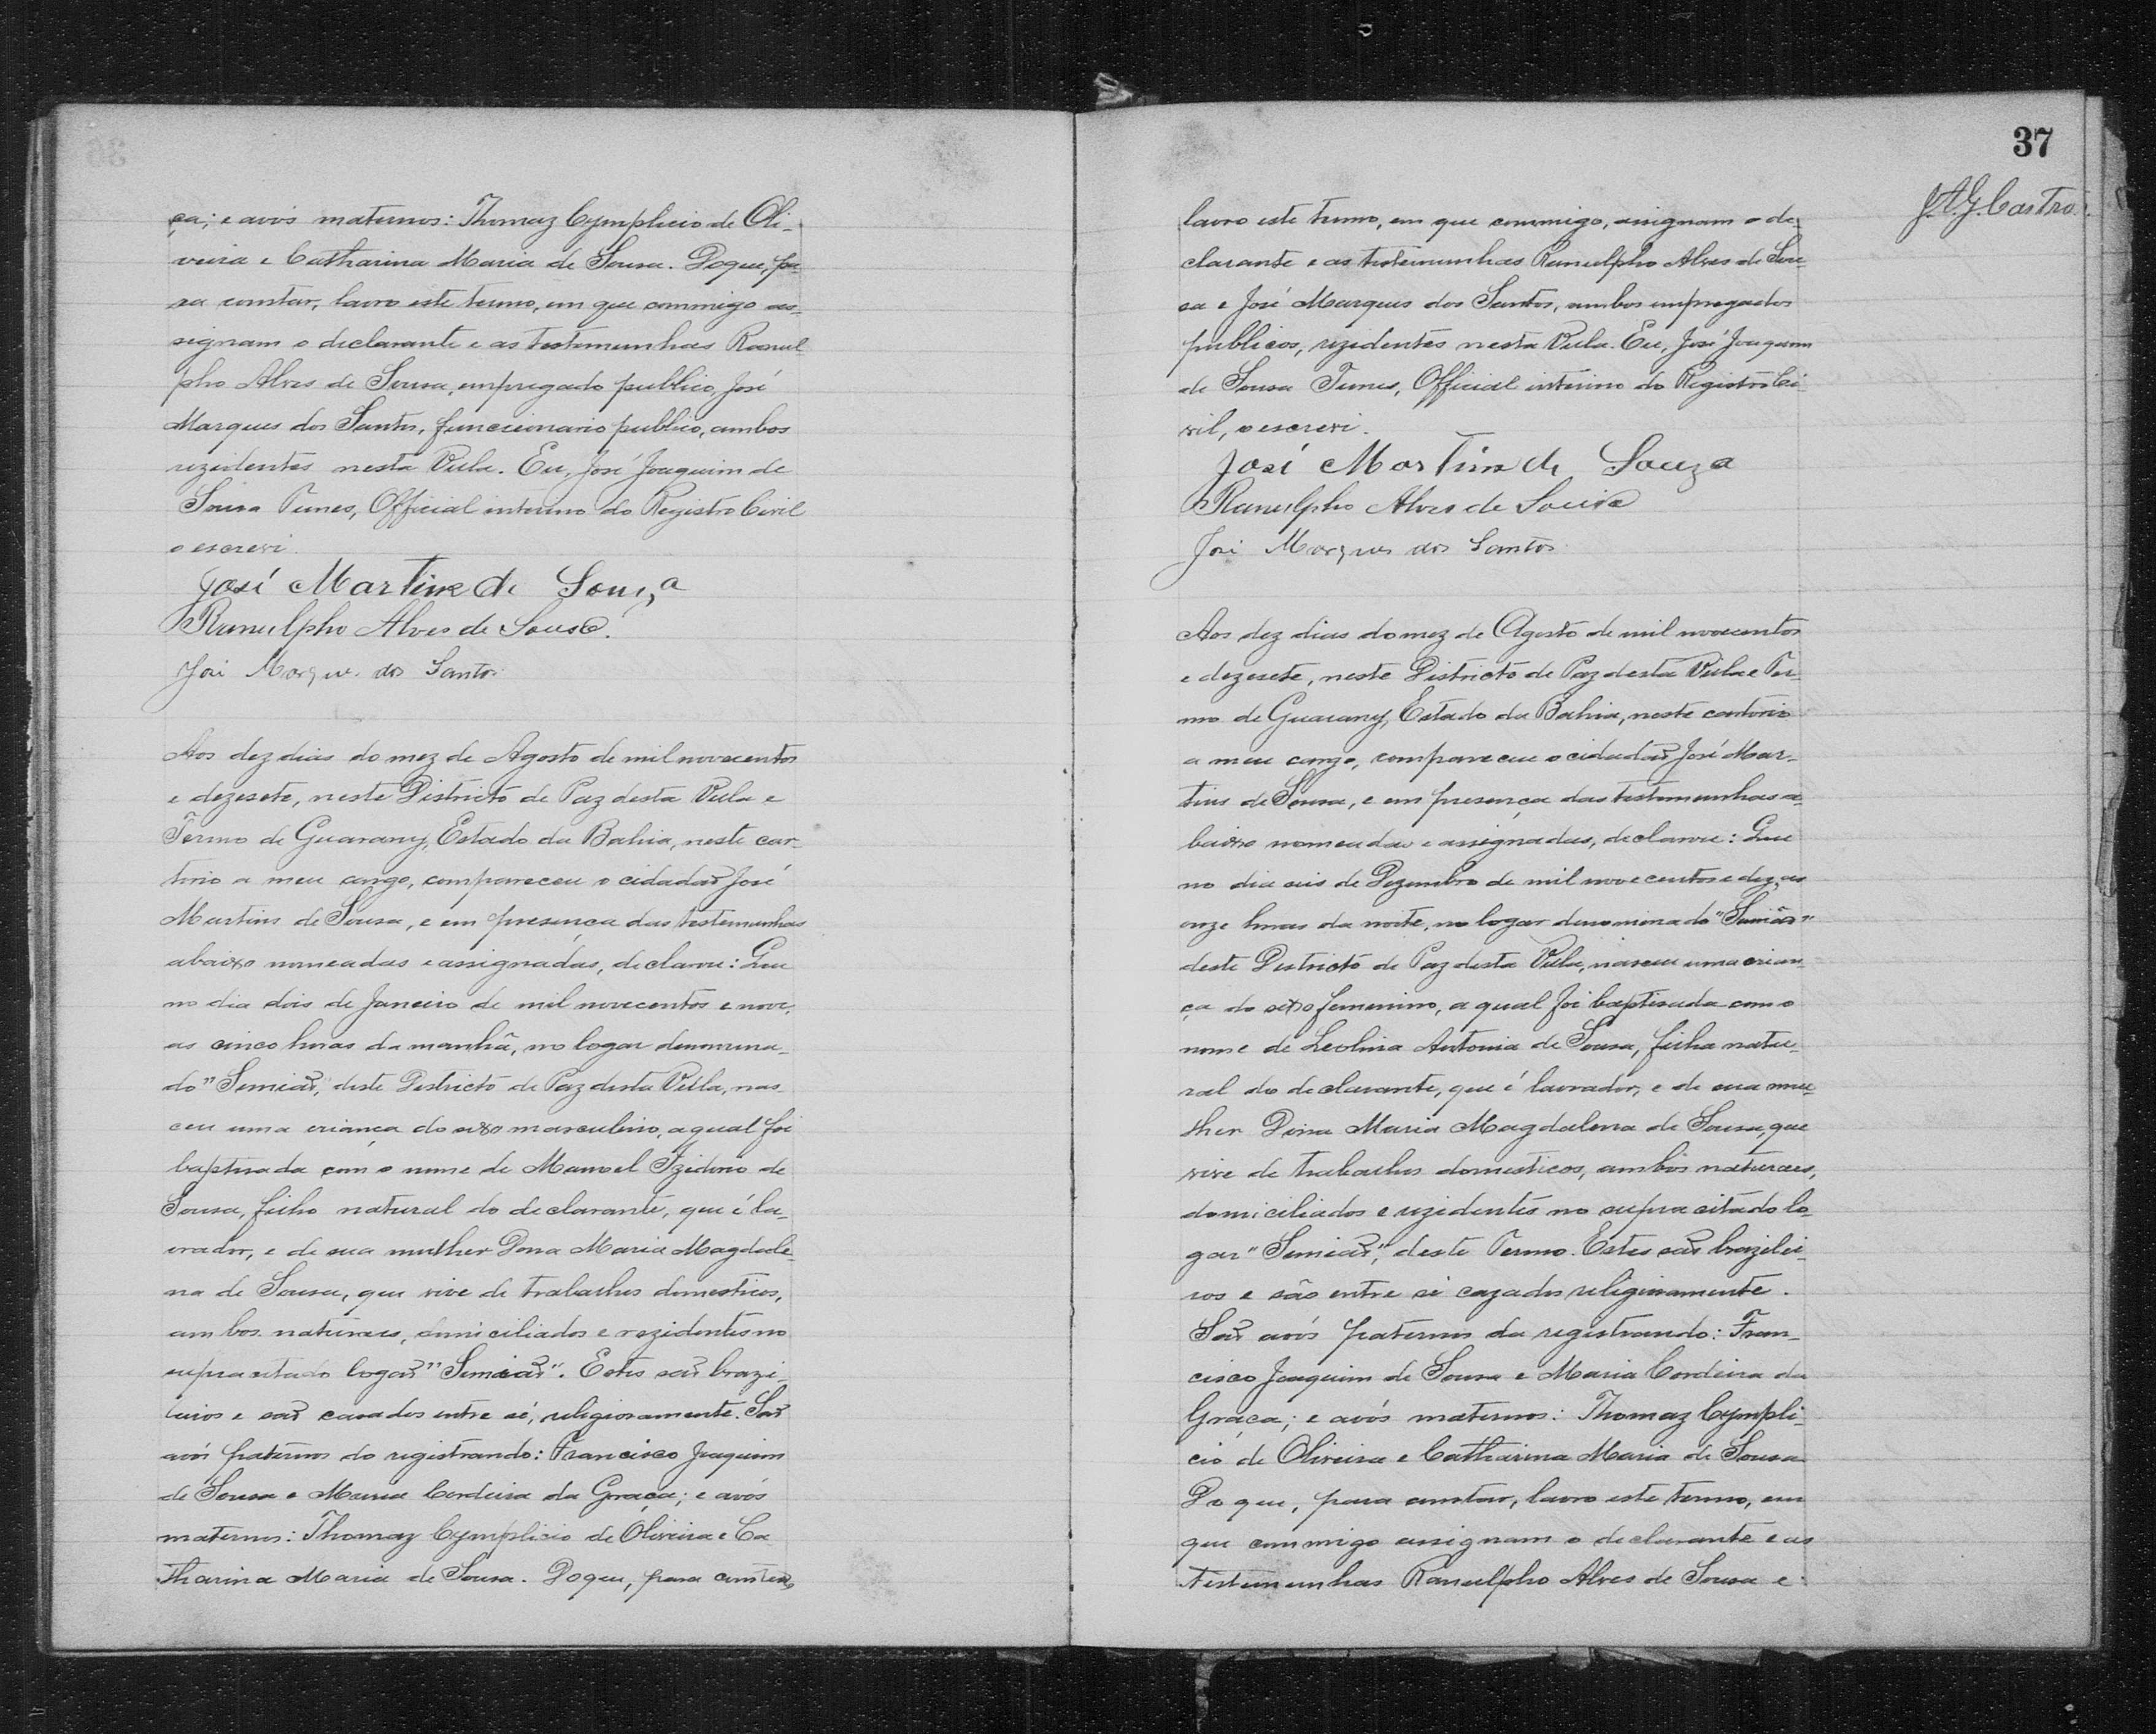 ça; e avós maternos: Thomaz Cymplicio de Oli-
veira e Catharina Maria de Sousa. Do que, pa-
ra constar, lavro este termo, em que commigo as-
signam o declarante e as testemunhas Ranul
pho Alves de Sousa, empregado publico, José
Marques dos Santos, funccionario publico, ambos
rezidentes nesta Villa. Eu, José Joaquim de
Sousa Tunes, Official interino do Registro Civil
o escrevi.
José Martins de Souza
Ranulpho Alves de Sousa.
José Marques dos Santos
Aos dez dias do mez de Agosto de mil novecentos
e dezesete, neste Districto de Paz desta Villa e
Termo de Guarany, Estado da Bahia, neste car-
torio a meu cargo, compareceu o cidadão José
Martins de Sousa, e em presença das testemunhas
abaixo nomeadas e assignadas, declarou: Que
no dia dois de Janeiro de mil novecentos e nove,
as cinco horas da manhã, no logar denomina-
do "Simião", deste Districto de Paz desta Villa, nas-
ceu uma criança do sexo masculino, a qual foi
baptisada com o nome de Manoel Izidorio de
Sousa, filho natural do declarante, que é la-
vrador, e de sua mulher Dona Maria Magdale-
na de Sousa, que vive de trabalhos domesticos,
ambos naturaes, domiciliados e rezidentes no
supracitado logar "Simião". Estes são brazi-
leiros e são casados entre si, religiosamente. São
avós paternos do registrando: Francisco Joaquim
de Sousa e Maria Cordeira da Graça; e avós
maternos: Thomaz Cymplicio de Oliveira e Ca
tharina Maria de Sousa. Do que, para constar,
37
J.A.G. Castro.
lavro este termo, em que commigo, assignam o de-
clarante e as testemunhas Ranulpho Alves de Sou-
sa e José Marques dos Santos, ambos empregados
publicos, rezidentes nesta Villa. Eu, José Joaquim
de Sousa Tunes, Official interino do Registro Ci-
vil, o escrevi.
José Martins de Souza
Ranulpho Alves de Sousa
José Marques dos Santos
Aos dez dias do mez de Agosto de mil novecentos
e dezesete, neste Districto de Paz desta Villa e Ter-
mo de Guarany, Estado da Bahia, neste cartorio
a meu cargo, compareceu o cidadão José Mar-
tins de Sousa, e em presença das testemunhas a-
baixo nomeadas e assignadas, declarou: Que
no dia seis de Dezembro de mil novecentos e dez, as
onze horas da noite, no logar denominado "Simião"
deste Districto de Paz desta Villa, nasceu uma crian-
ça do sexo femenino, a qual foi baptisada com o
nome de Leolina Antonia de Sousa, filha natu-
ral do declarante, que é lavrador, e de sua mu-
lher Dona Maria Magdalena de Sousa, que
vive de trabalhos domesticos, ambos naturaes,
domiciliados e rezidentes no supracitado lo-
gar "Simião", deste Termo. Estes são brazilei-
ros e são entre si cazados religiosamente.
São avós paternos da registrando: Fran-
cisco Joaquim de Sousa e Maria Cordeira da
Graça; e avós maternos: Thomaz Cympli-
cio de Oliveira e Catharina Maria de Sousa
Do que, para constar, lavro este termo, em
que commigo assignam o declarante e as
testemunhas Ranulpho Alves de Sousa e